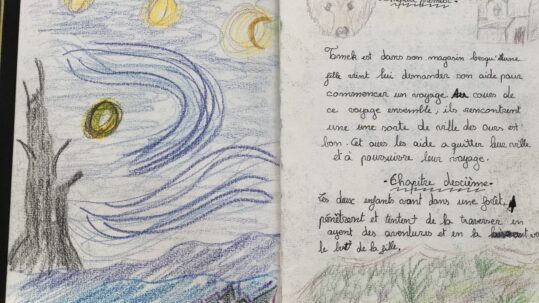 Chapitre premier
Tomek est dans son magasin lorsqu'une
fille vient lui demander son aide pour
commencer un voyage. Au cours de
ce voyage ensemble, ils rencontrent
une une sorte de ville des ours est
bon. Cet ours les aide a quitter leur ville
et à poursuivre leur voyage.
Chapitre deuxième
Les deux enfants vont dans une forêt,
pénètrent et tentent de la traverser en
ayant des aventures et en la
le but de la fille.